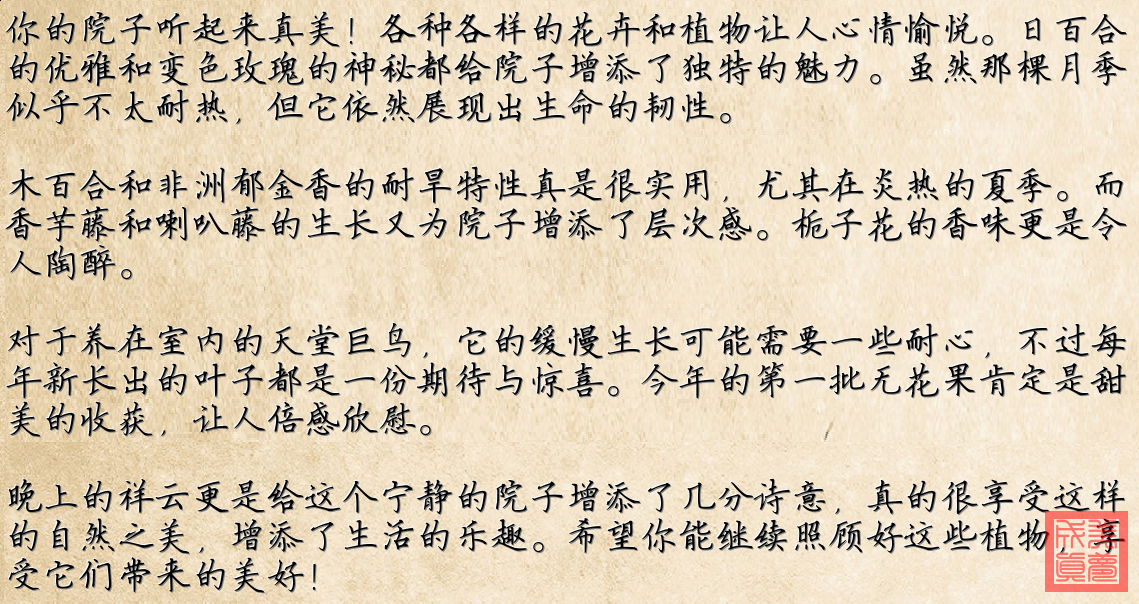 你的院子听起来真美！各种各样的花卉和植物让人心情愉悦。日百合
的优雅和变色玫瑰的神秘都给院子增添了独特的魅力。虽然那棵月季
似乎不太耐热，但它依然展现出生命的韧性。
木百合和非洲郁金香的耐旱特性真是很实用，尤其在炎热的夏季。而
香芋藤和喇叭藤的生长又为院子增添了层次感。栀子花的香味更是令
人陶醉。
对于养在室内的天堂巨鸟，它的缓慢生长可能需要一些耐心，不过每
年新长出的叶子都是一份期待与惊喜。今年的第一批无花果肯定是甜
美的收获，让人倍感欣慰。
晚上的祥云更是给这个宁静的院子增添了几分诗意，真的很享受这样
的自然之美，增添了生活的乐趣。希望你能继续照顾好这些植物，享
受它们带来的美好！